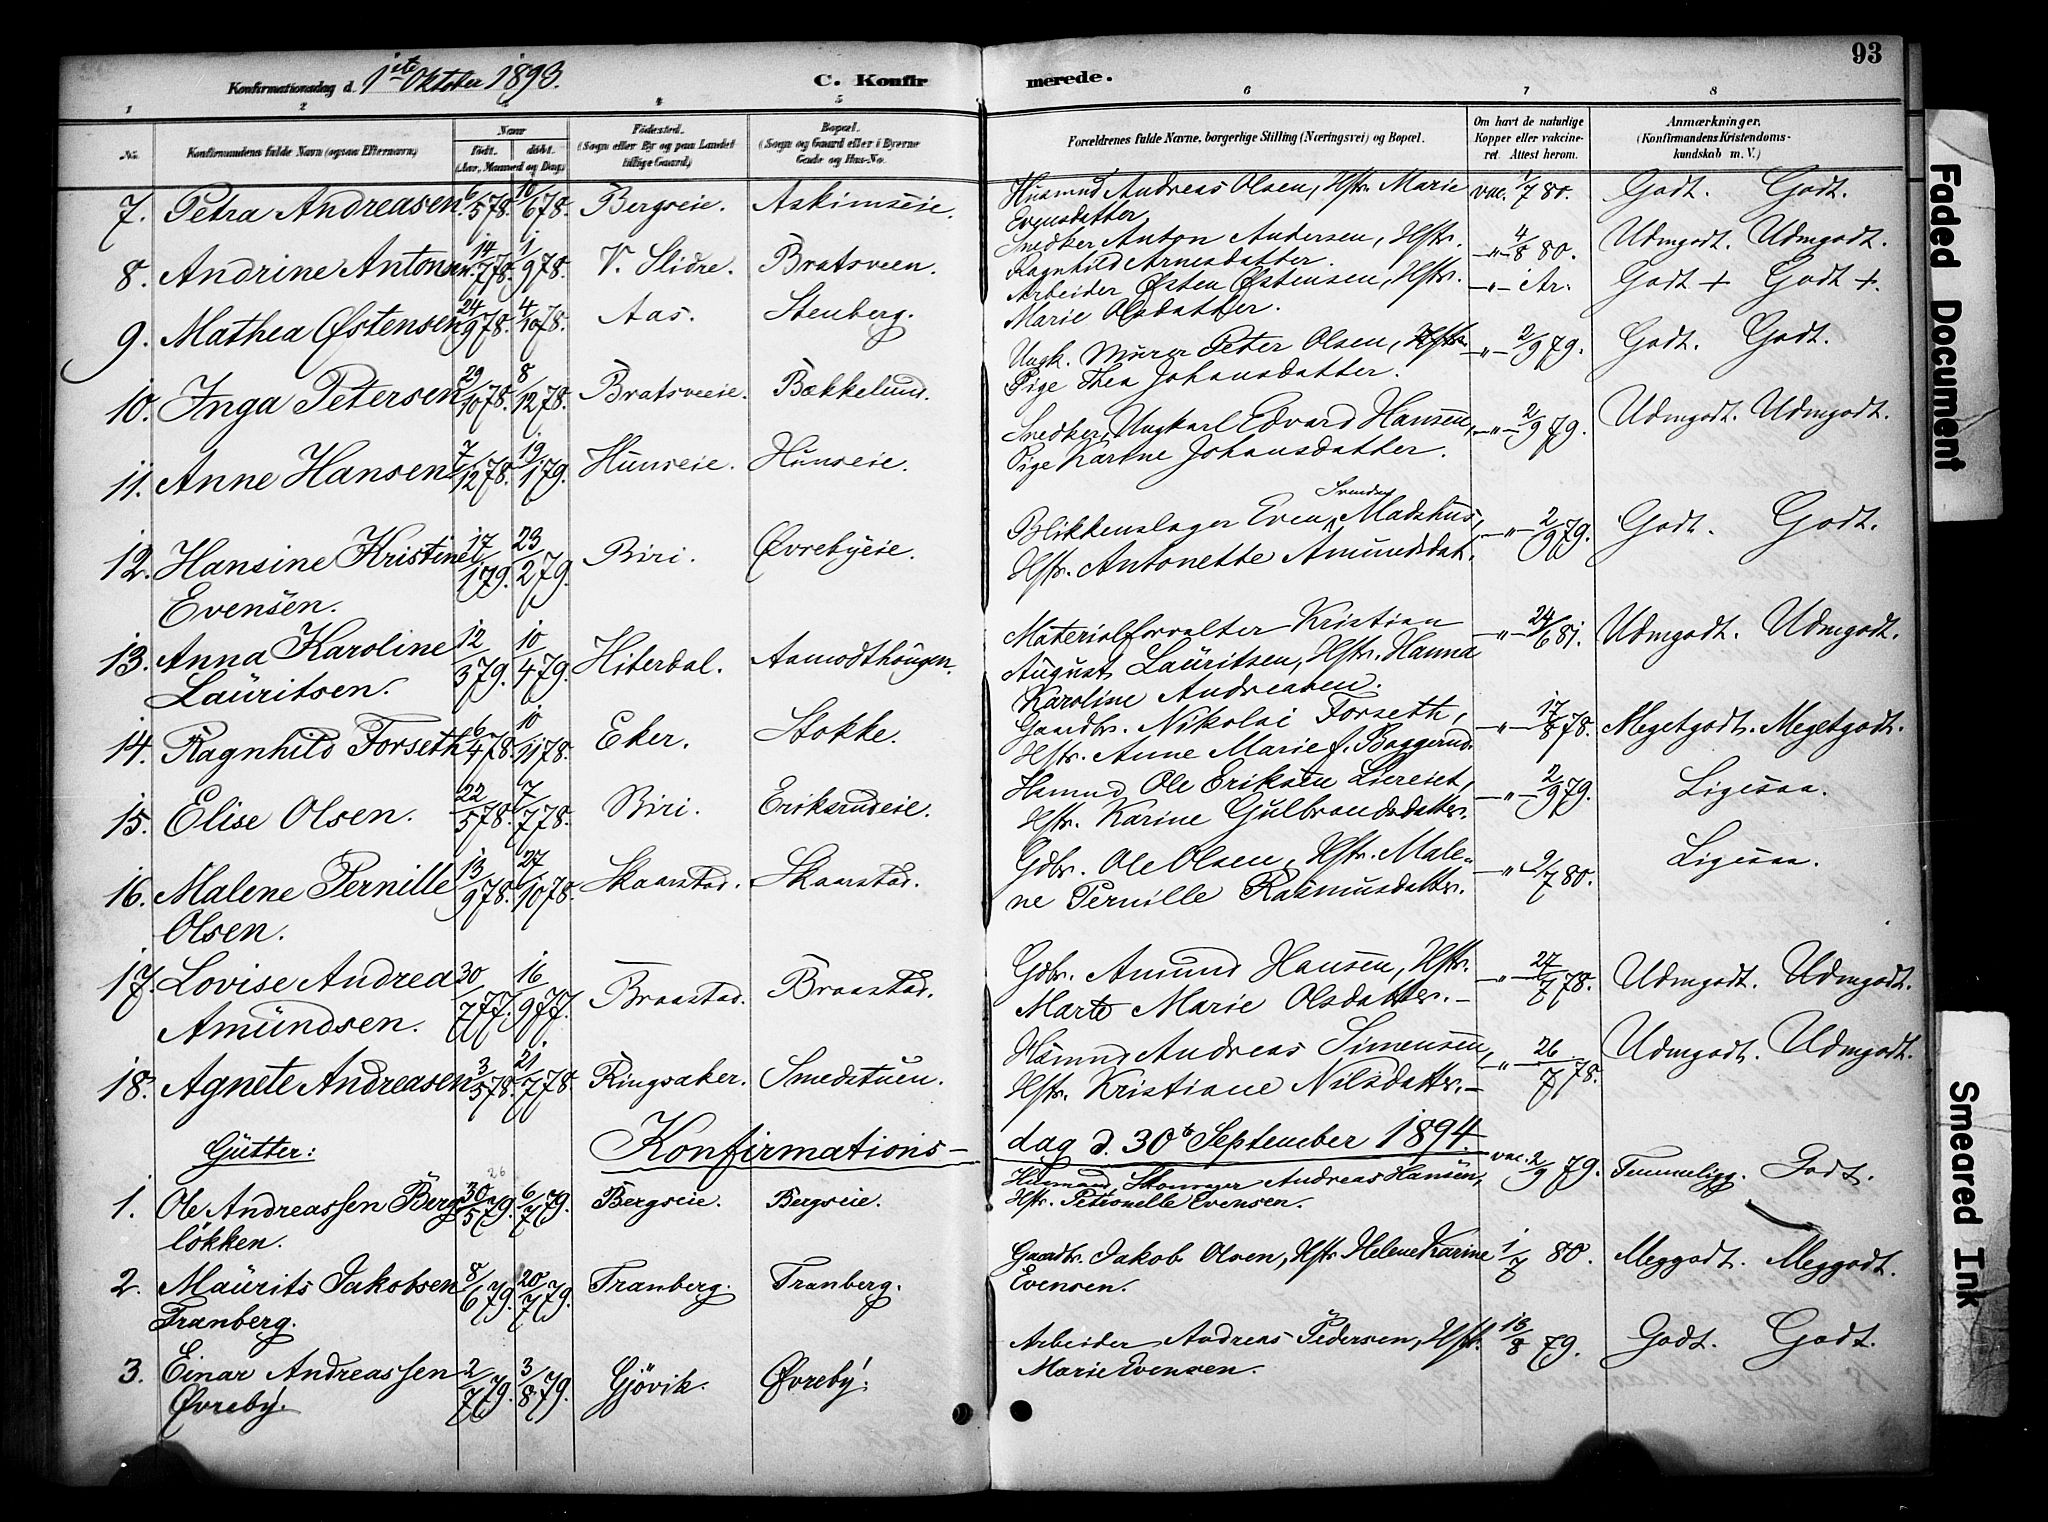 93
Konfirmationsdag d. 1ste Oktober 1893. C. Konfir merede.
1 2 3 4 5 6 7 8
No. Konfirmandens fulde Navn (ogsaa Efternavn). Naar født. døbt. (Aar, Maaned og Dag). Fødested. (Sogn eller By og paa Landet tillige Gaard.) Bopæl. (Sogn og Gaard eller i Byerne Gade og Hus-No. Forældrenes fulde Navne, borgerlige Stilling (Næringsvei) og Bopæl. Om havt de naturlige Kopper eller vakcineret. Attest herom. Anmærkninger. (Konfirmandens Kristendomskundskab m. V.)
7. Petra Andreasen 6/5 78. 10/6 78. Bergseie. Askimseie. Husmnd Andreas Olsen, Hstr. Marie vac. 1/7 80. Godt. Godt.
Evensdatter
8. Andrine Antonsen. 14/7 78. 1/9 78. V. Slidre. Bratsveen. Snedker Anton Andersen, Hstr. -"- 4/8 80. Udmgodt. Udmgodt.
Ragnhild Arnesdatter.
9. Mathea Østensen 24/9 78. 4/10 78. Aas. Stenberg. Arbeider Østen Østensen, Hstr. -"- i Ar. Godt + Godt +.
Marie Olsdatter.
10. Inga Petersen 29/10 78. 8/12 78. Bratsveeie. Bækkelund. Ungk. Murer Peter Olsen, -"- 2/9 79. Godt. Godt.
Pige Thea Johansdatter.
11. Anne Hansen 7/12 78. 19/1 79. Hunseie. Hunseie. Snedker, Ungkarl Edvard Hansen, -"- 2/9 79. Udmgodt. Udmgodt.
Pige Karine Johansdatter.
12. Hansine Kristine 17/1 79. 23/2 79. Biri. Øvrebyeie. Blikkenslager Even Svendsen Madshus, -"- 2/9 79. Godt. Godt.
Evensen. Hstr. Antonette Amundsdat.
13. Anna Karoline 12/3 79. 10/4 79. Hiterdal. Aamodthougen. Materialforvalter Kristian -"- 24/6 81. Udmgodt. Udmgodt.
Lauritsen. August Lauritsen, Hstr. Hanna
Karoline Andreasen.
14. Ragnhild Forseth 6/4 78. 10/11 78. Eker. Stokke. Gaardbr. Nikolai Forseth, -"- 17/8 78. Megetgodt. Megetgodt.
Hstr. Anne Marie f. Baggerud.
15. Elise Olsen. 22/5 78. 7/7 78. Biri. Eriksrudeie. Hsmnd Ole Eriksen Liereiet, -"- 2/9 79. Ligesaa.
Hstr. Karine Gulbrandsdatter.
16. Malene Pernille 13/9 78. 27/10 78. Skaarstad. Skaarstad. Gdbr. Ole Olsen, Hstr. Male- -"- 2/7 80. Ligesaa.
Olsen. ne Pernille Rasmusdatter.
17. Lovise Andrea 30/7 77. 16/9 77. Braastad. Braastad. Gdbr. Amund Hansen, Hstr. -"- 27/7 78. Udmgodt. Udmgodt.
Amundsen. Marte Marie Olsdatter.-
18. Agnete Andreasen 3/5 78. 21/7 78. Ringsaker. Smedstuen. Hsmnd Andreas Simensen, -"- 26/7 78. Udmgodt. Udmgodt.
Hstr. Kristiane Nilsdatter.-
Gutter: Konfirmations- dag d. 30te September 1894.
1. Ole Andreassen Berg 30/5 79. 26 6/7 79. Bergseie. Bergseie. Husmand, Skomager Andreas Hansen, vac. 2/9 79. Temmeligg. Godt.
løkken. Hstr. Petronelle Evensen.
2. Maurits Jakobsen 8/6 79. 20/7 79. Tranberg. Tranberg. Gaardbr. Jakob Olsen, Hstr Helene Karine 1/7 80. Meggodt. Meggodt.
Tranberg. Evensen.
3. Einar Andreassen 2/7 79. 3/8 79. Gjøvik. Øvreby. Arbeider Andreas Pedersen, Hstr. 13/8 79. Godt. Godt.
Øvreby. Marie Evensen.
Faded Document
Smeared Ink